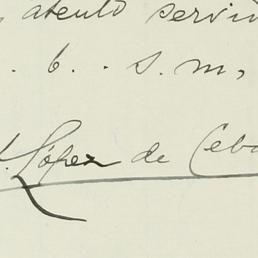 , atento servid
. b. . s. m,
. López de Ceba